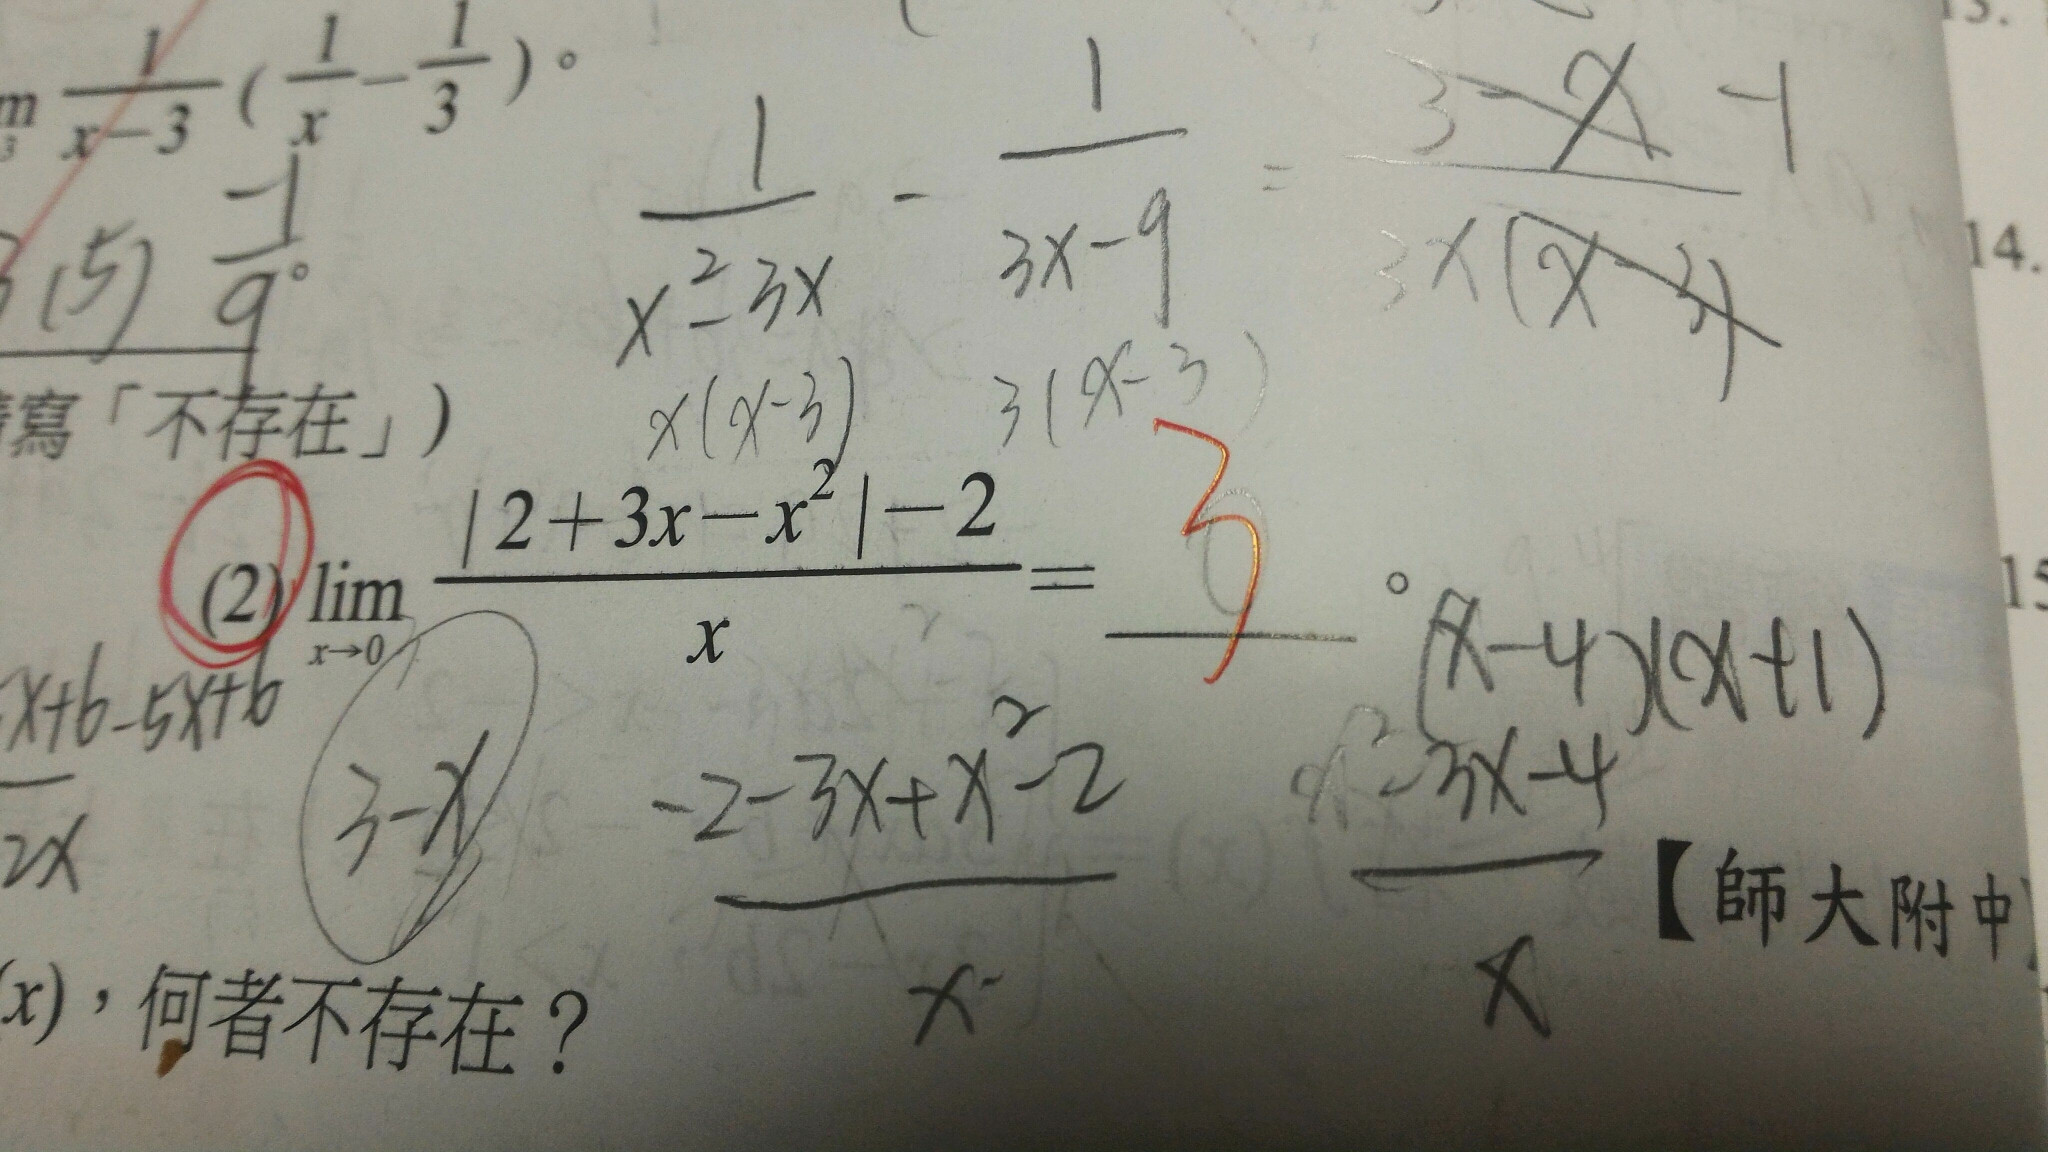 1/(x-3) ( 1/x - 1/3 )。
-1/9
(5)
1/(x²-3x) - 1/(3x-9) = (3-x)/(3x(x-3)) -1
x(x-3) 3(x-3)
寫「不存在」)
(2) lim x→0 (|2+3x-x²|-2)/x = 3 。
(x-4)(x+1)
x+6-5x+6
2x
3-x
(-2-3x+x²-2)/x
(x²-3x-4)/x
【師大附中
(x),何者不存在?
14.
15